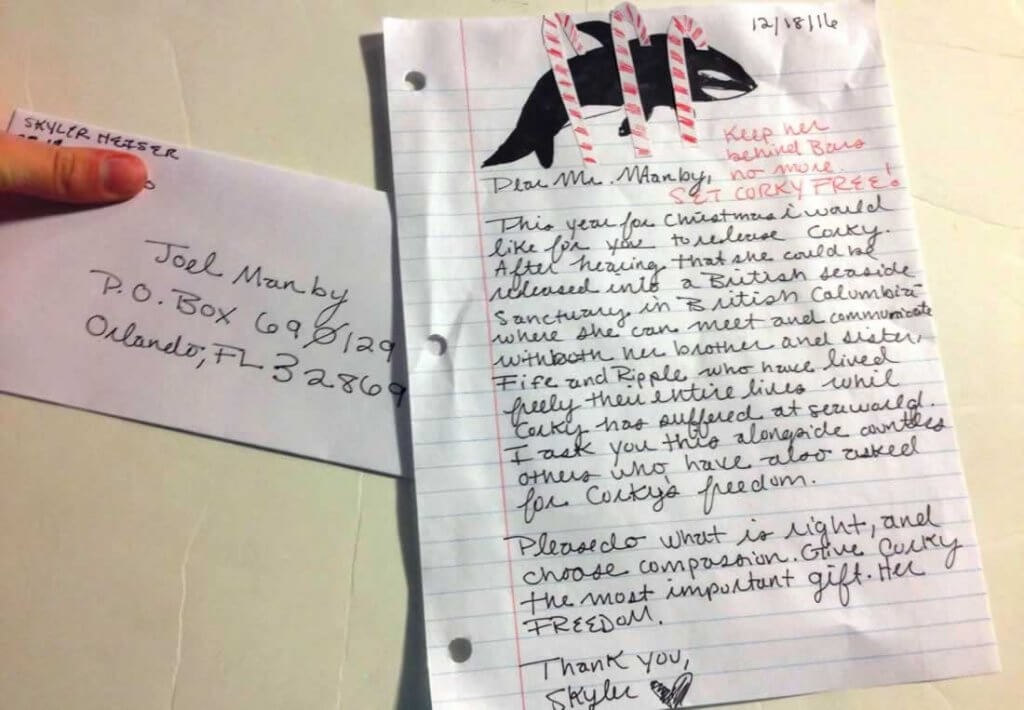 SKYLER HEISER
Joel Manby
P.O. Box 690129
Orlando, FL 32869
12/18/16
Keep her
behind Bars
no more.
SET CORKY FREE!
Dear Mr. Manby,
This year for Christmas i would
like for you to release Corky.
After hearing that she could be
released into a British seaside
Sanctuary in British Calumbia
where she can meet and communicate
with both her brother and sister,
Fife and Ripple who have lived
freely their entire lives whil
Corky has suffered at seaworld.
I ask you this alongside countless
others who have also asked
for Corky's freedom.
Please do what is right, and
choose compassion. Give Corky
the most important gift. Her
FREEDOM.
Thank you,
Skyler